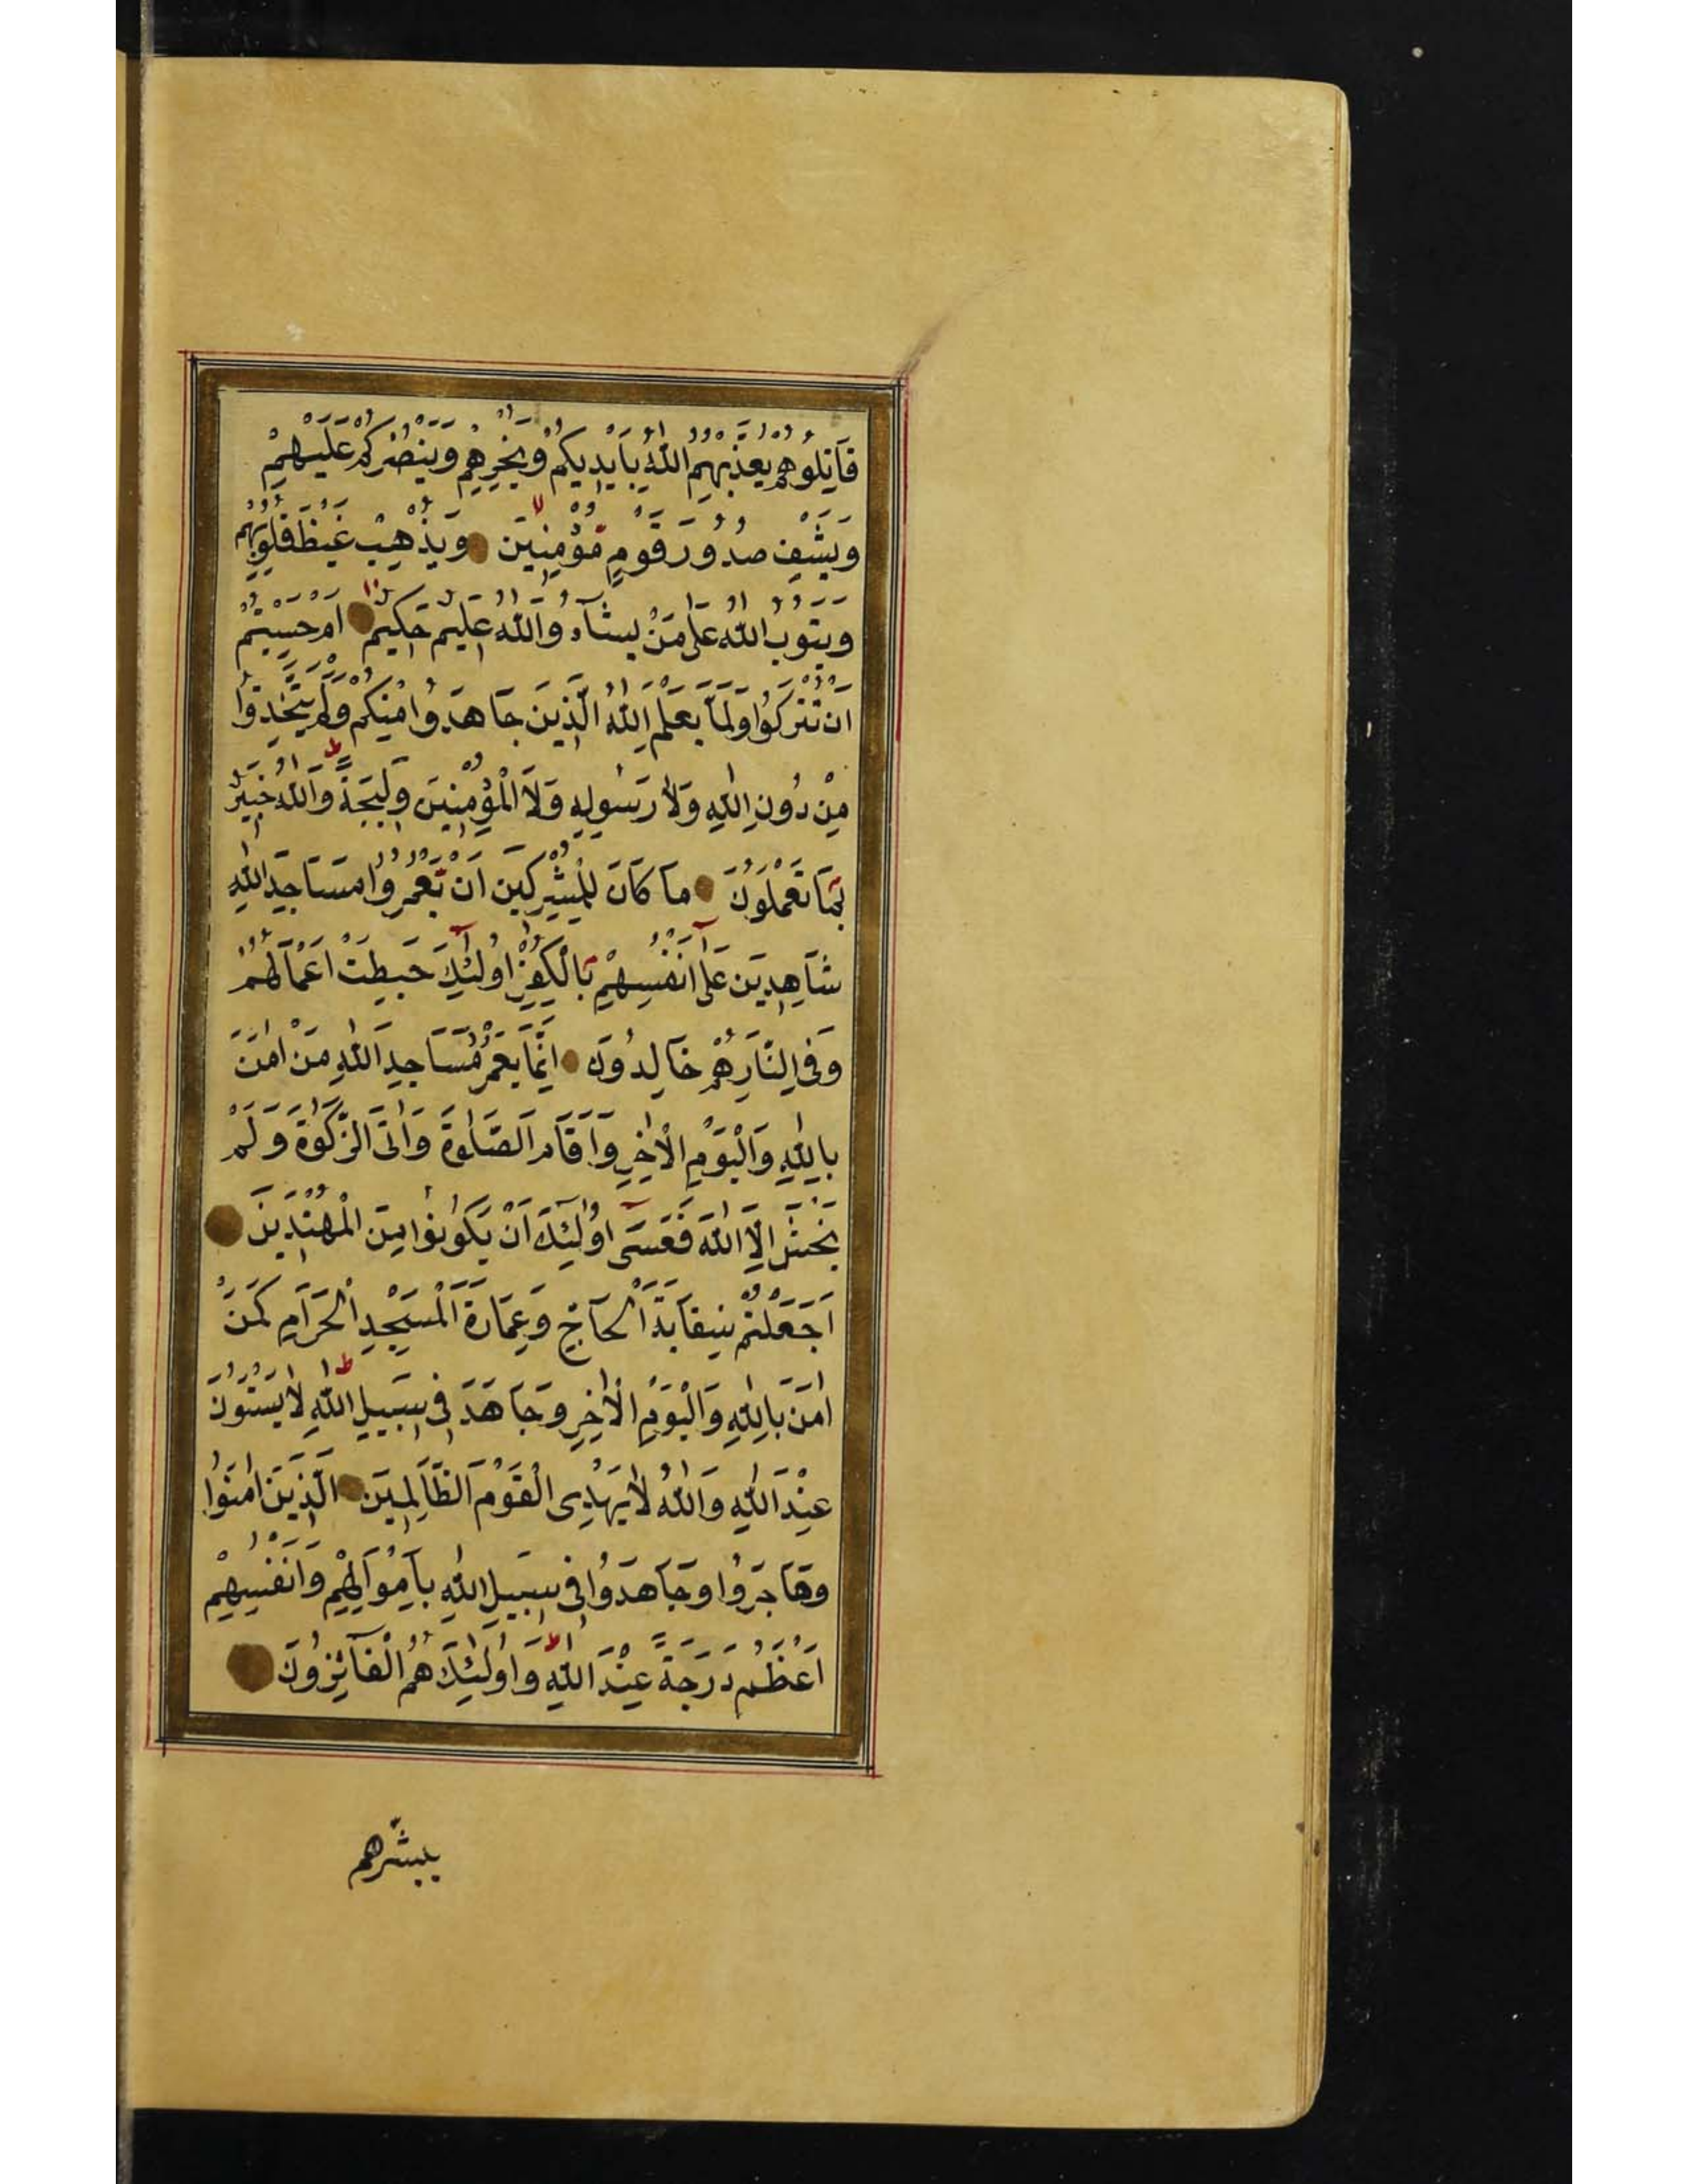 قَاتِلُوهُمْ يُعَذِّبْهُمُ اللّٰهُ بِاَيْدِيكُمْ وَيُخْزِهِمْ وَيَنْصُرْكُمْ عَلَيْهِمْ
وَيَشْفِ صُدُورَ قَوْمٍ مُؤْمِنِينَ وَيُذْهِبْ غَيْظَ قُلُوبِهِمْ
وَيَتُوبُ اللّٰهُ عَلٰى مَنْ يَشَآءُ وَاللّٰهُ عَلِيمٌ حَكِيمٌ اَمْ حَسِبْتُمْ
اَنْ تُتْرَكُوا وَلَمَّا يَعْلَمِ اللّٰهُ الَّذِينَ جَاهَدُوا مِنْكُمْ وَلَمْ يَتَّخِذُوا
مِنْ دُونِ اللّٰهِ وَلَا رَسُولِهِ وَلَا الْمُؤْمِنِينَ وَلِيجَةً وَاللّٰهُ خَبِيرٌ
بِمَا تَعْمَلُونَ مَا كَانَ لِلْمُشْرِكِينَ اَنْ يَعْمُرُوا مَسَاجِدَ اللّٰهِ
شَاهِدِينَ عَلٰٓى اَنْفُسِهِمْ بِالْكُفْرِ اُولٰٓئِكَ حَبِطَتْ اَعْمَالُهُمْ
وَفِى النَّارِ هُمْ خَالِدُونَ اِنَّمَا يَعْمُرُ مَسَاجِدَ اللّٰهِ مَنْ اٰمَنَ
بِاللّٰهِ وَالْيَوْمِ الْاٰخِرِ وَاَقَامَ الصَّلٰوةَ وَاٰتَى الزَّكٰوةَ وَلَمْ
يَخْشَ اِلَّا اللّٰهَ فَعَسٰٓى اُولٰٓئِكَ اَنْ يَكُونُوا مِنَ الْمُهْتَدِينَ
اَجَعَلْتُمْ سِقَايَةَ الْحَآجِّ وَعِمَارَةَ الْمَسْجِدِ الْحَرَامِ كَمَنْ
اٰمَنَ بِاللّٰهِ وَالْيَوْمِ الْاٰخِرِ وَجَاهَدَ فِى سَبِيلِ اللّٰهِ لَا يَسْتَوُونَ
عِنْدَ اللّٰهِ وَاللّٰهُ لَا يَهْدِى الْقَوْمَ الظَّالِمِينَ الَّذِينَ اٰمَنُوا
وَهَاجَرُوا وَجَاهَدُوا فِى سَبِيلِ اللّٰهِ بِاَمْوَالِهِمْ وَاَنْفُسِهِمْ
اَعْظَمُ دَرَجَةً عِنْدَ اللّٰهِ وَاُولٰٓئِكَ هُمُ الْفَآئِزُونَ
يبشّرهم